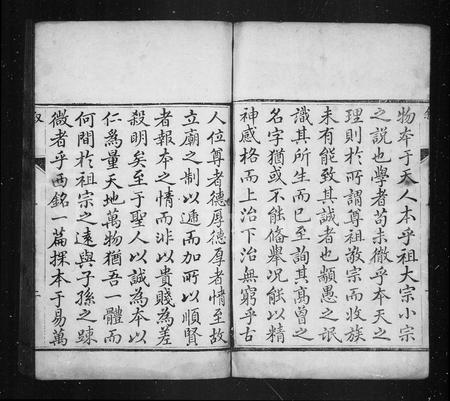 物本于天人本乎祖大宗小宗
之説也學者苟未徹乎本天之
理則於所謂尊祖敬宗而收族
未有能致其誠者也顓愚之氓
識其所生而已至詢其髙曽之
名字猶或不能偹舉况能以精
神感格而上治下治無窮乎古
人位尊者德厚德厚者情至故
立廟之制以遞而加所以順賢
者報本之情而非以貴賤為差
殺明矣至于聖人以誠為本以
仁為量天地萬物猶吾一體而
何間於祖宗之遠與子孫之踈
微者乎西銘一篇探本于易萬